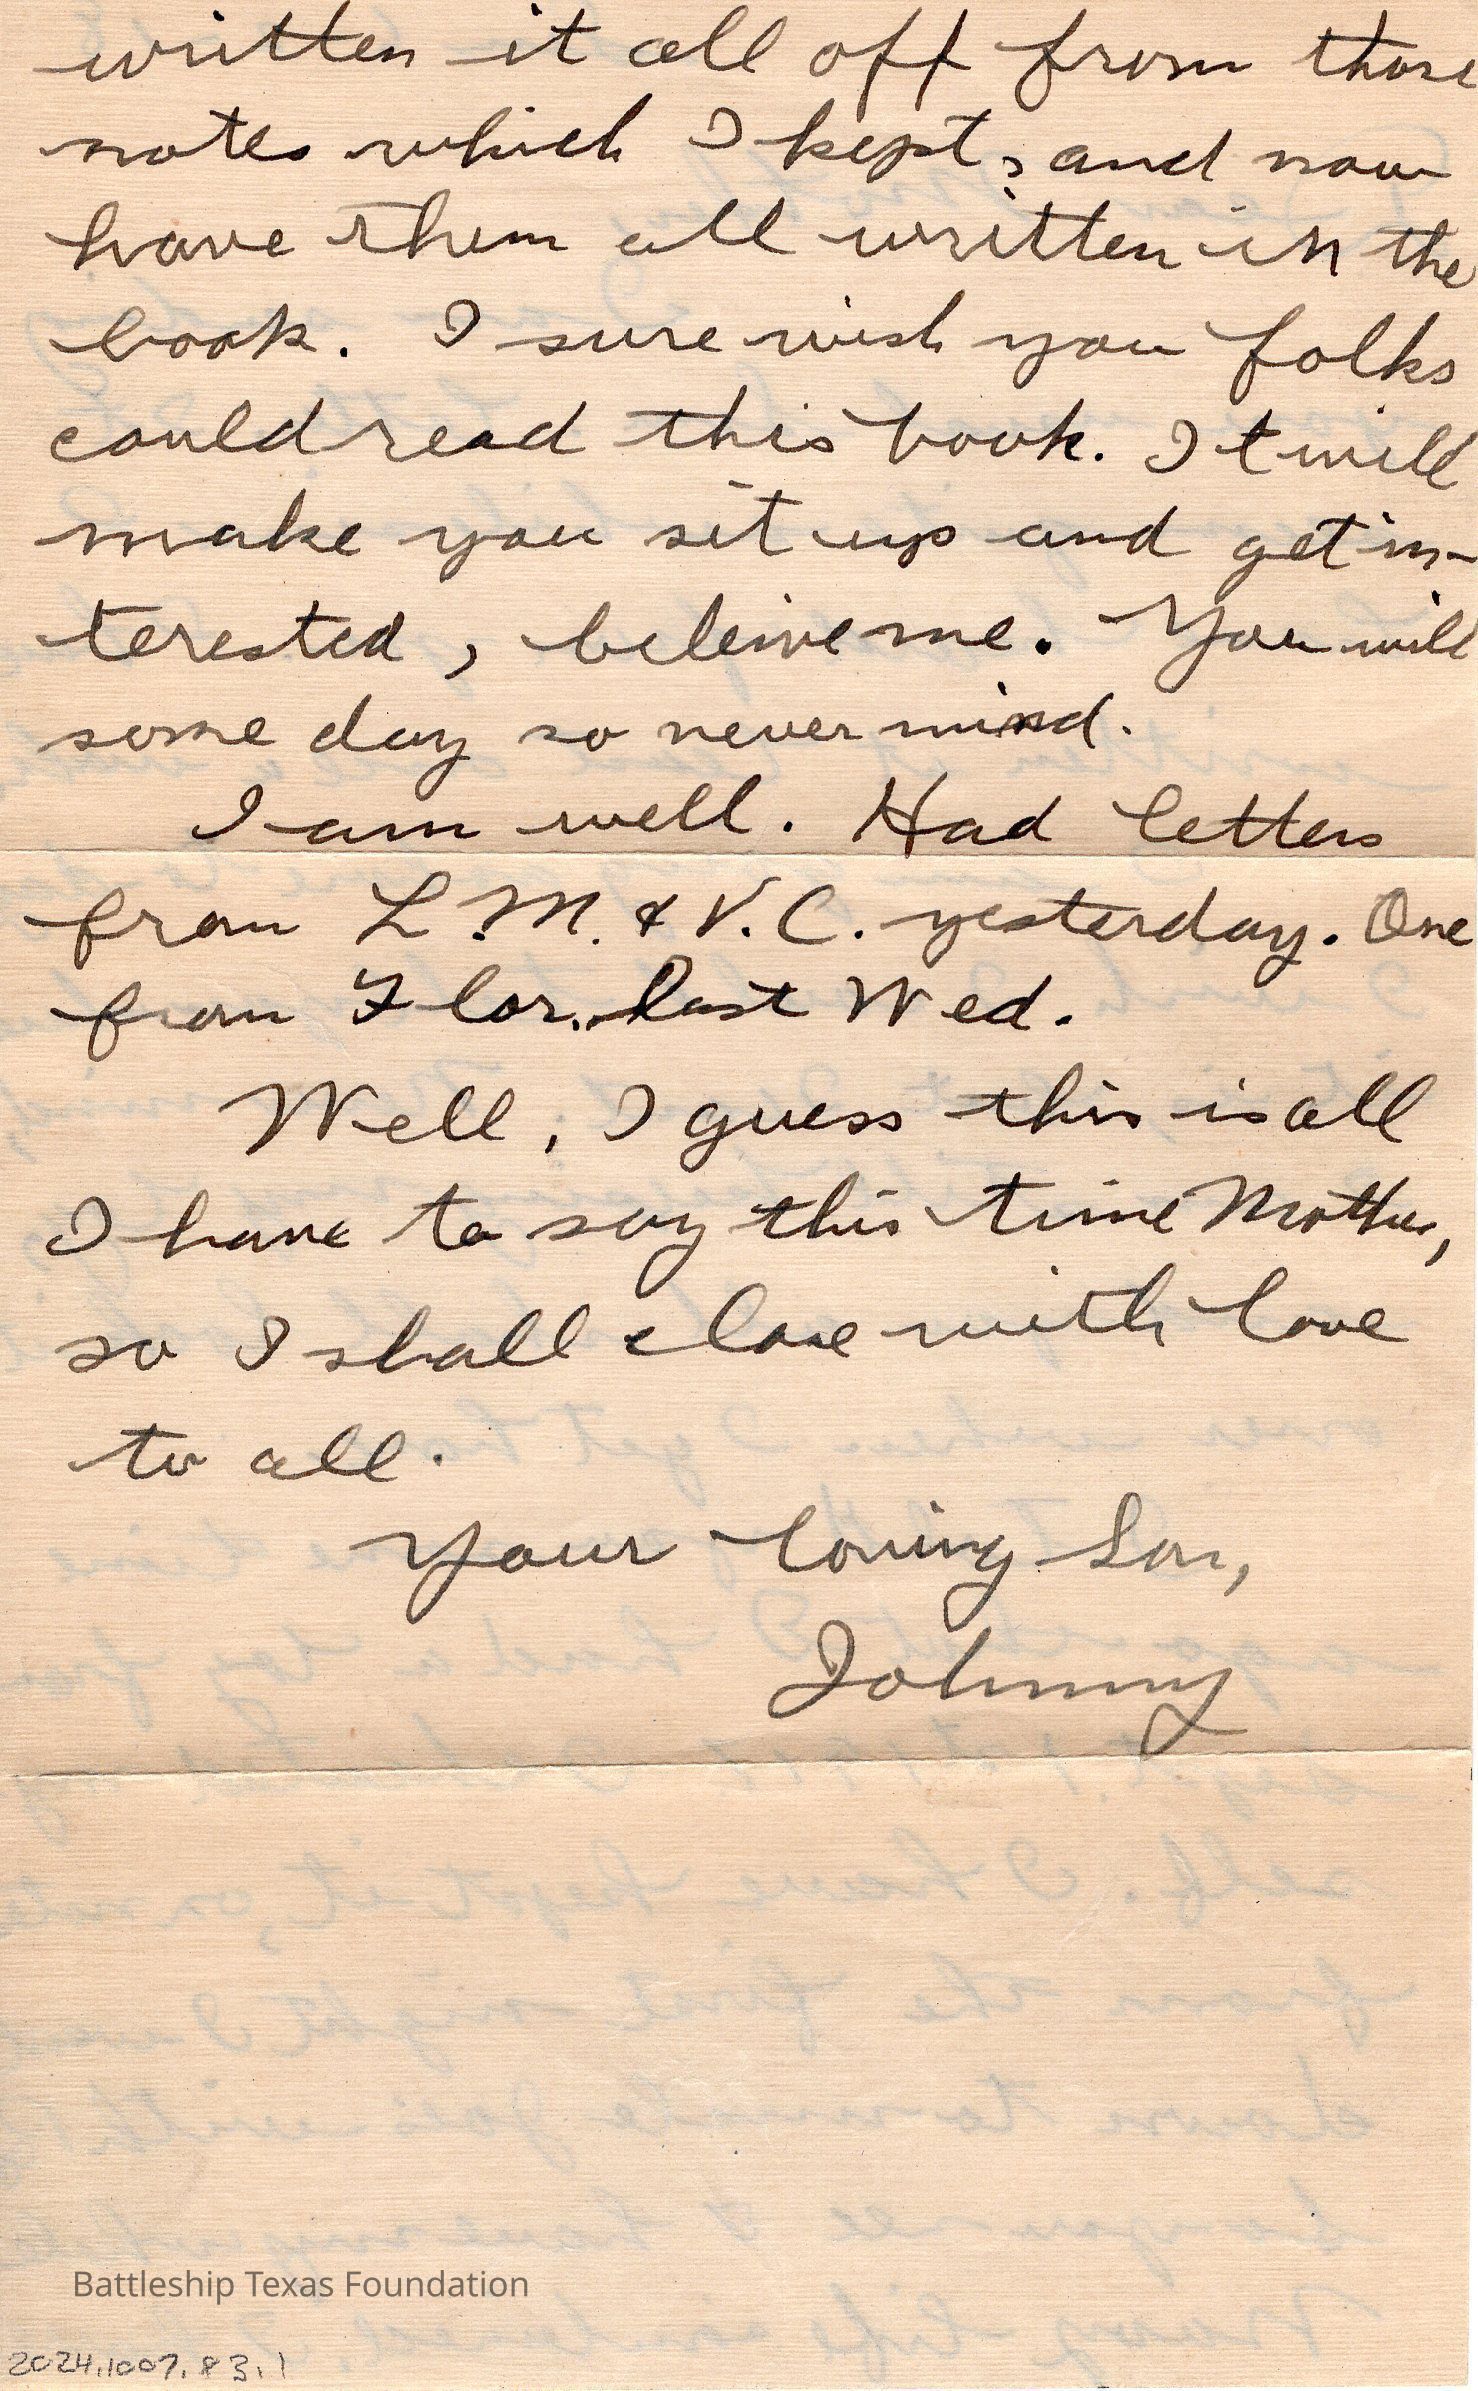 written it all off from those
notes which I kept, and now
have them all written in the
book. I sure wish you folks
could read this book. It will
make you sit up and get in-
terested, beleive me. You will
some day so never mind.
I am well. Had letters
from L.M. & V.C. yesterday. One
from Flor. last Wed.
Well, I guess this is all
I have to say this time Mother,
so I shall close with love
to all.
Your loving Son,
Johnny
Battleship Texas Foundation
2024.1007.83.1